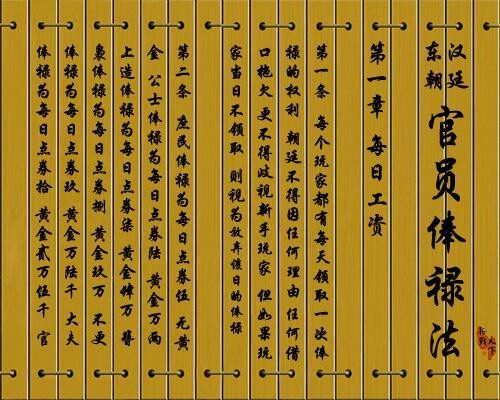 东汉
朝廷
官员俸禄法
第一章 每日工资
第一条 每个玩家都有每天领取一次俸
禄的权利 朝廷不得因任何理由任何借
口拖欠 更不得歧视新手玩家 但如果玩
家当日不领取 则视为放弃该日的俸禄
第二条 庶民俸禄为每日点券伍 无黄
金 公士俸禄为每日点券陆 黄金万两
上造俸禄为每日点券柒 黄金肆万 簪
袅俸禄为每日点券捌 黄金玖万 不更
俸禄为每日点券玖 黄金万陆千 大夫
俸禄为每日点券拾 黄金贰万伍千 官